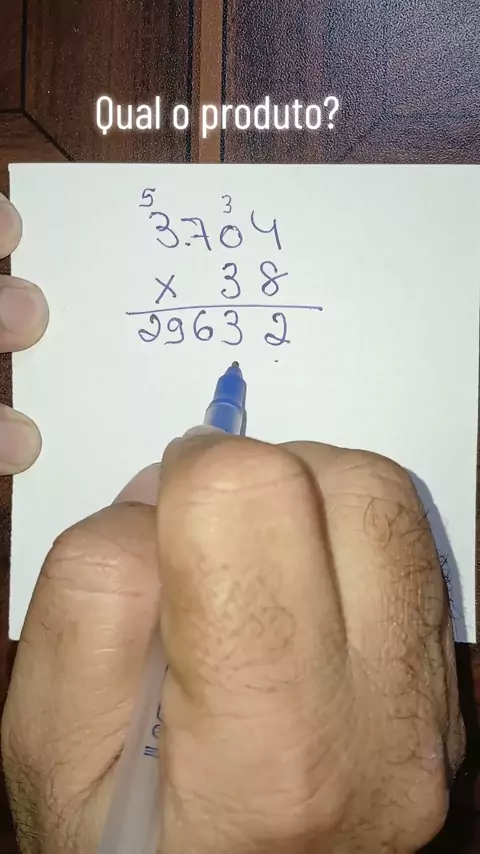 Qual o produto?
5 3
3.704
x 38
29632